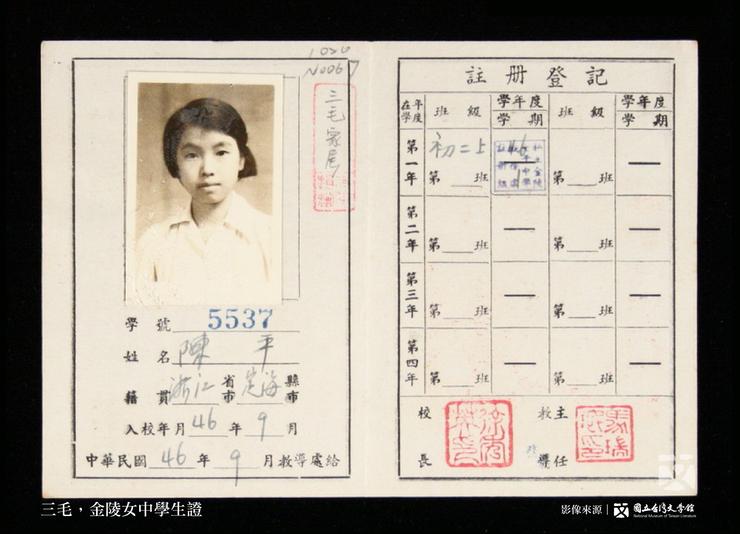 1020
N0067
三毛家屬
學號 5537
姓名 陳 平
籍貫 浙江 省市 定海 縣市
入校年月 46 年 9 月
中華民國 46 年 9 月教導處給
註冊登記
在學年度 班級 學年度學期 班級 學年度學期
第一年 初二上 46
第 班 第 班
第二年
第 班 第 班
第三年
第 班 第 班
第四年
第 班 第 班
校長
教導主任
三毛，金陵女中學生證
影像來源｜國立台灣文學館
National Museum of Taiwan Literature